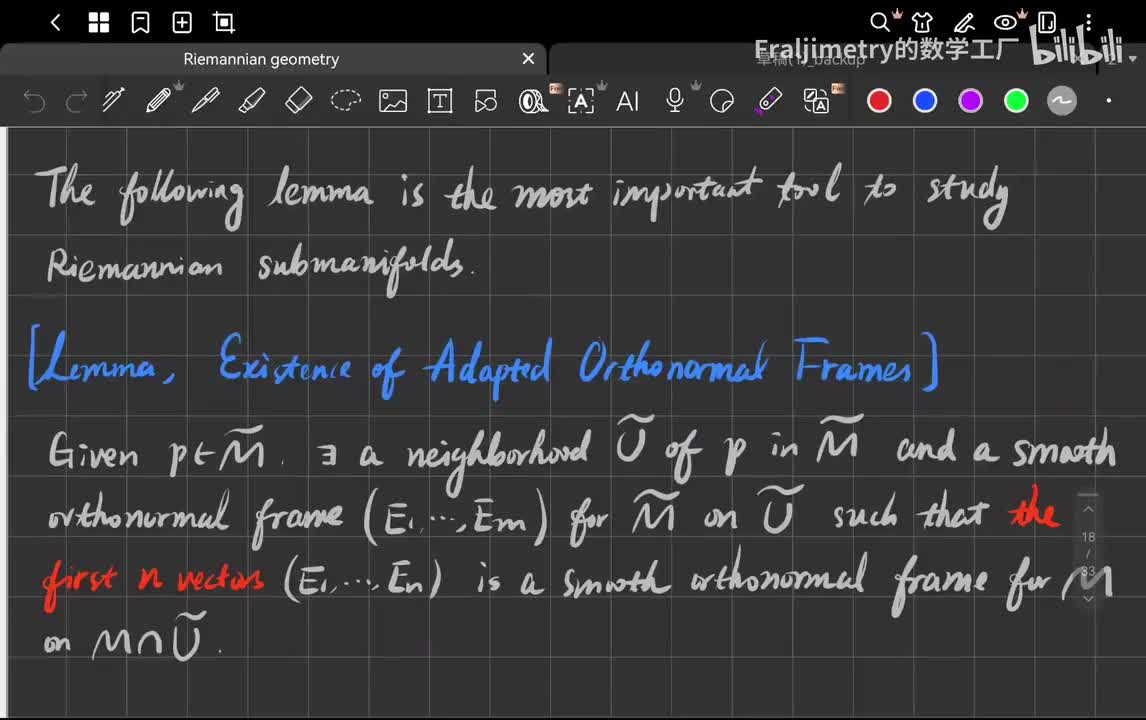 Fraljimetry的数学工厂 bilibili
Riemannian geometry
草稿(1)_backup
The following lemma is the most important tool to study
Riemannian submanifolds.
[Lemma, Existence of Adapted Orthonormal Frames]
Given p∈M̃. ∃ a neighborhood Ũ of p in M̃ and a smooth
orthonormal frame (E₁,⋯,Em) for M̃ on Ũ such that the
first n vectors (E₁,⋯,En) is a smooth orthonormal frame for M
on M∩Ũ.
18
/
33